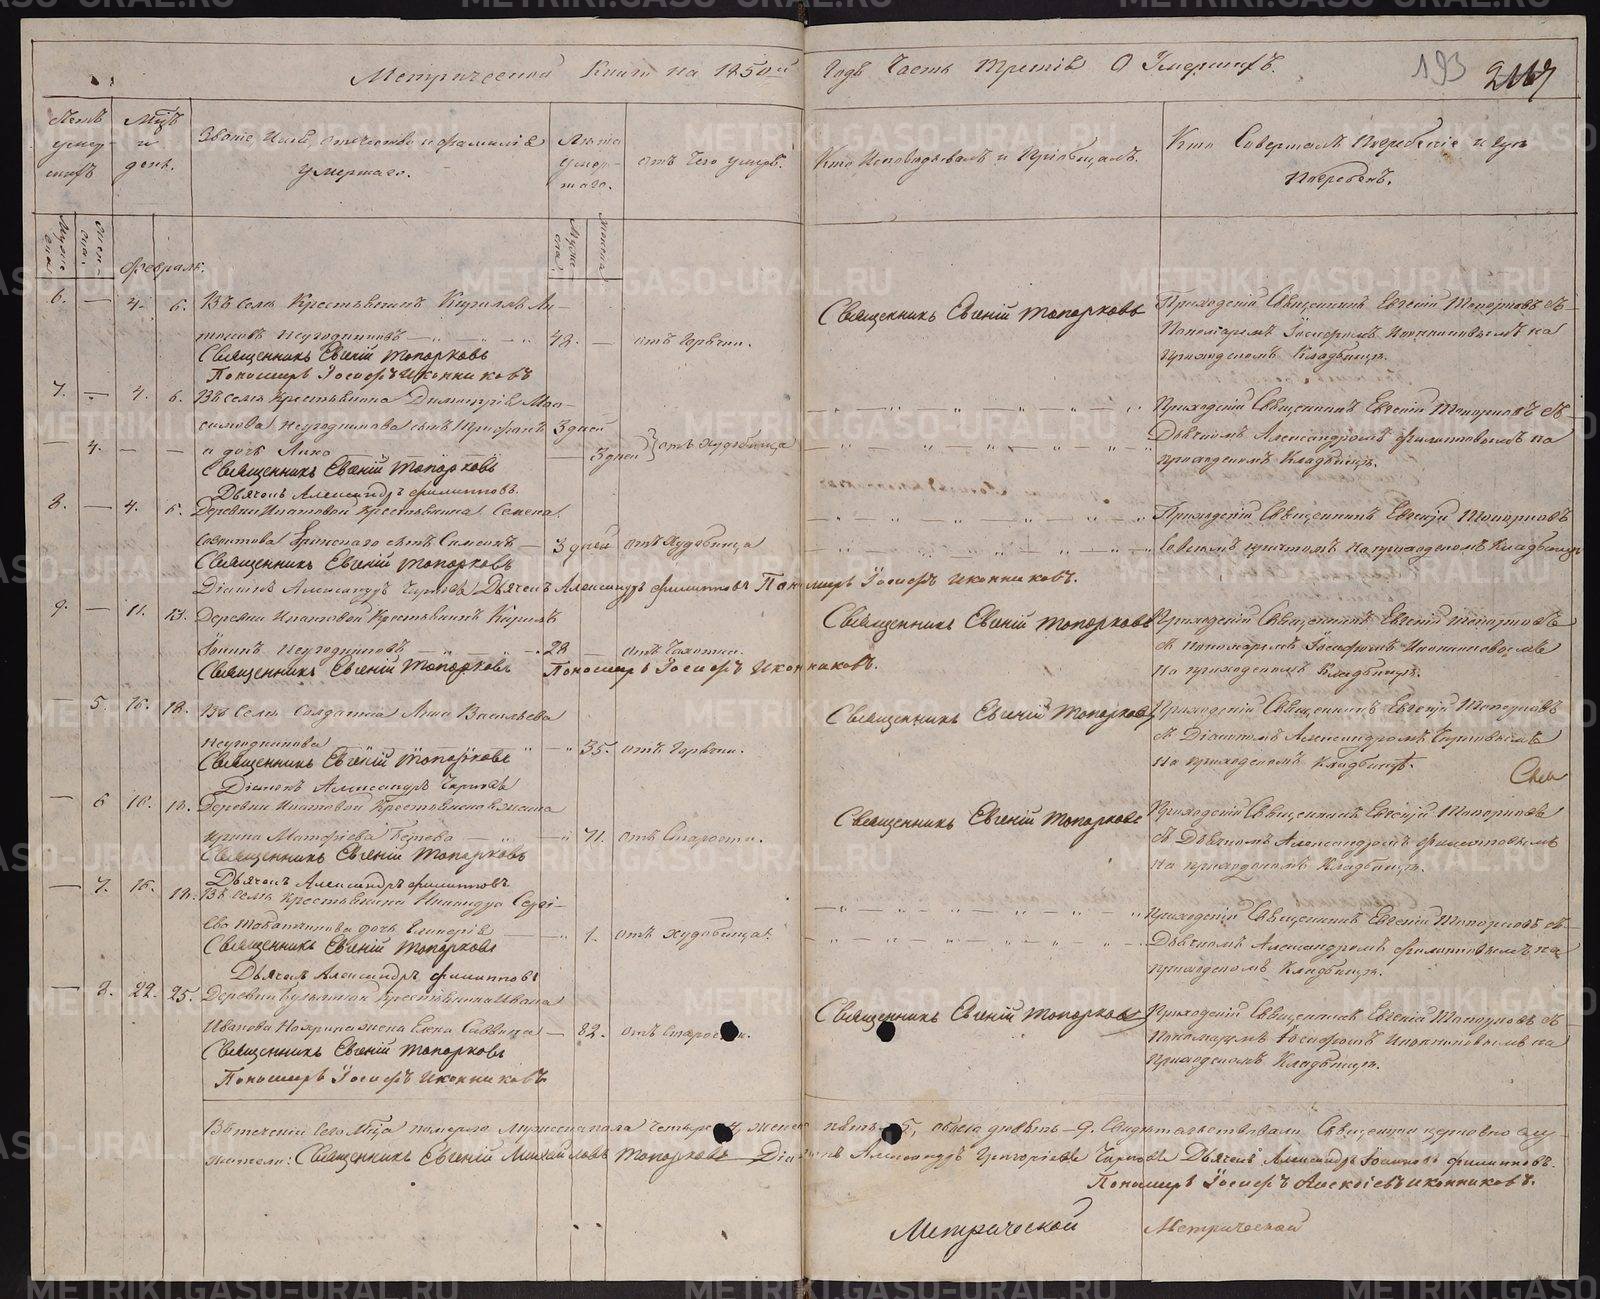 Метрической Книги на 1850й Годъ Часть Третія О Умершихъ.
193
Мѣц и день.
Званіе, Имя, отчество и фамилія умершаго.
Лѣта умершаго.
отъ чего умеръ.
Кто Исповѣдывалъ и Пріобщалъ.
Кто Совершалъ Погребеніе и гдѣ Погребенъ.
Февраль.
6. — 4. 6. Въ Селѣ Крестьянинъ Кириллъ
Неугодниковъ 42. — отъ Горячки.
Священникъ Евгеній Топорковъ
Пономарь Іосифъ Иконниковъ
Священникъ Евгеній Топорковъ
Приходскій Священникъ Евгеній Топорковъ съ
Пономаремъ Іосифомъ Иконниковымъ на
приходскомъ Кладбищѣ.
7. — 4. 6. Въ Селѣ Крестьянина Димитрія
Неугодникова сынъ 3 дней
— 4. — — и дочь Анна — 3 дней отъ Худобища
Священникъ Евгеній Топорковъ
Дьячекъ Александръ Филипповъ.
Приходскій Священникъ Евгеній Топорковъ съ
Дьячкомъ Александромъ Филипповымъ на
приходскомъ Кладбищѣ.
8. — 4. 6. Деревни Ипатовой Крестьянина Семена
сынъ Симеонъ — 3 дней отъ Худобища
Священникъ Евгеній Топорковъ
Діаконъ Александръ Дьячекъ Александръ Филипповъ Пономарь Іосифъ Иконниковъ.
Приходскій Священникъ Евгеній Топорковъ
со всемъ причтомъ на приходскомъ Кладбищѣ
9. — 11. 13. Деревни Ипатовой Крестьянинъ Кириллъ
Неугодниковъ 28 — отъ Чахотки.
Священникъ Евгеній Топорковъ Пономарь Іосифъ Иконниковъ.
Священникъ Евгеній Топорковъ
Приходскій Священникъ Евгеній Топорковъ
съ пономаремъ Іосифомъ Иконниковымъ
на приходскомъ Кладбищѣ.
— 5. 16. 18. Въ Селѣ Солдатка Анна Васильева
Неугодникова 35. отъ Горячки.
Священникъ Евгеній Топорковъ
Діаконъ Александръ
Священникъ Евгеній Топорковъ
Приходскій Священникъ Евгеній Топорковъ
съ Діакономъ Александромъ
на приходскомъ Кладбищѣ.
— 6 16. 18. Деревни Ипатовой Крестьянская жена
71. отъ Старости.
Священникъ Евгеній Топорковъ
Дьячекъ Александръ Филипповъ
Священникъ Евгеній Топорковъ
Приходскій Священникъ Евгеній Топорковъ
съ Дьячкомъ Александромъ Филипповымъ
на приходскомъ Кладбищѣ.
— 7. 16. 18. Въ Селѣ Крестьянина Никандра Сергі-
ева дочь 1. отъ худобища.
Священникъ Евгеній Топорковъ
Дьячекъ Александръ Филипповъ
Приходскій Священникъ Евгеній Топорковъ съ
Дьячкомъ Александромъ Филипповымъ на
приходскомъ Кладбищѣ.
— 8. 22. 25. Деревни Крестьянина Ивана
Иванова жена Елена Саввина — 82. отъ старости.
Священникъ Евгеній Топорковъ
Пономарь Іосифъ Иконниковъ
Священникъ Евгеній Топорковъ
Приходскій Священникъ Евгеній Топорковъ съ
Пономаремъ Іосифомъ Иконниковымъ на
приходскомъ Кладбищѣ.
Въ теченіи сего Мѣца померло мужеска пола четыре 4, женска пять — 5, обоего девять — 9. Свидѣтельствовали Священно церковно слу-
жители: Священникъ Евгеній Михайловъ Топорковъ Діаконъ Александръ Григоріевъ Дьячекъ Александръ Іоанновъ Филипповъ.
Пономарь Іосифъ Алексіевъ Иконниковъ.
Метрической Метрической
METRIKI.GASO-URAL.RU